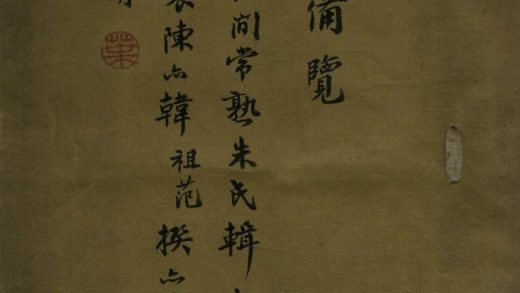 備覽
間常熟朱氏輯
陳亦韓祖范撰亦
葉